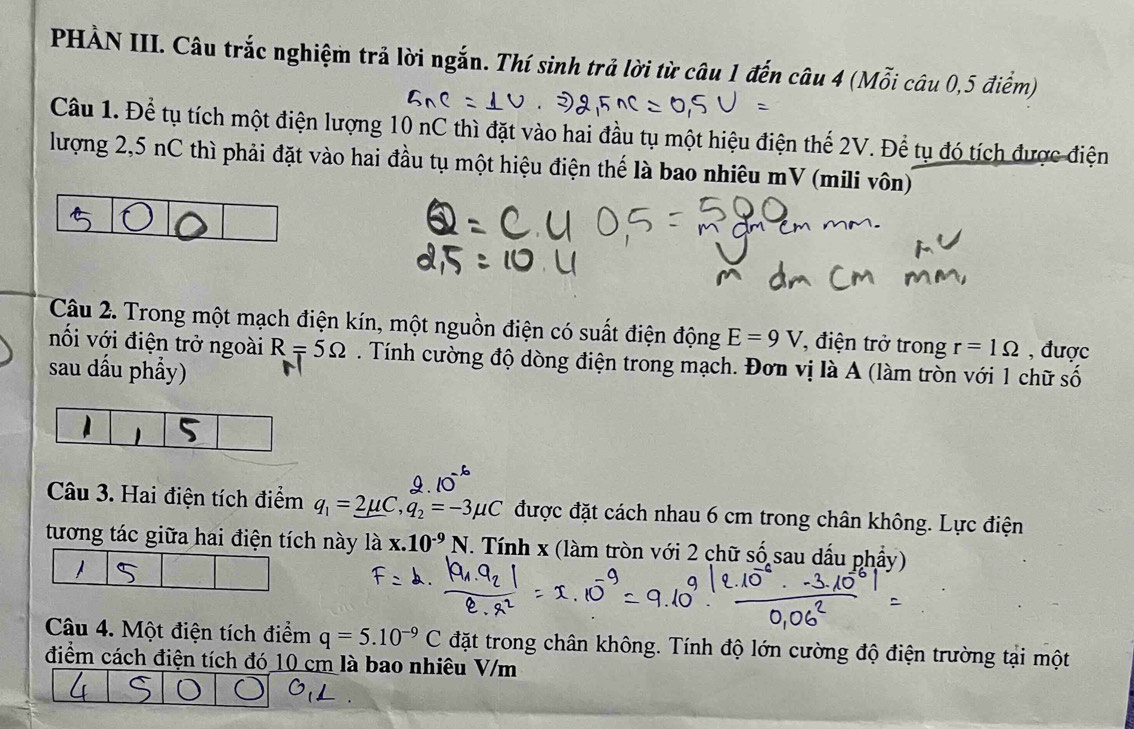 PHẦN III. Câu trắc nghiệm trả lời ngắn. Thí sinh trả lời từ câu 1 đến câu 4 (Mỗi câu 0,5 điểm)
5nC = 1V. ⇒ 2,5nC = 0,5 V =
Câu 1. Để tụ tích một điện lượng 10 nC thì đặt vào hai đầu tụ một hiệu điện thế 2V. Để tụ đó tích được điện
lượng 2,5 nC thì phải đặt vào hai đầu tụ một hiệu điện thế là bao nhiêu mV (mili vôn)
5 0 0
Q = C.U 0,5 = 500
m dm cm mm.
2,5 = 10.U
V
m dm cm mm,
Câu 2. Trong một mạch điện kín, một nguồn điện có suất điện động E = 9 V, điện trở trong r = 1Ω , được
nối với điện trở ngoài R = 5Ω . Tính cường độ dòng điện trong mạch. Đơn vị là A (làm tròn với 1 chữ số
sau dấu phẩy)
1 , 5
2.10⁻⁶
Câu 3. Hai điện tích điểm q₁ = 2μC, q₂ = -3μC được đặt cách nhau 6 cm trong chân không. Lực điện
tương tác giữa hai điện tích này là x.10⁻⁹ N. Tính x (làm tròn với 2 chữ số sau dấu phẩy)
1 5
F = k. |q₁.q₂| / ε.r² = x.10⁻⁹ = 9.10⁹. |2.10⁻⁶ . -3.10⁻⁶| / 0,06² =
Câu 4. Một điện tích điểm q = 5.10⁻⁹ C đặt trong chân không. Tính độ lớn cường độ điện trường tại một
điểm cách điện tích đó 10 cm là bao nhiêu V/m
4 5 0 0 0,1.